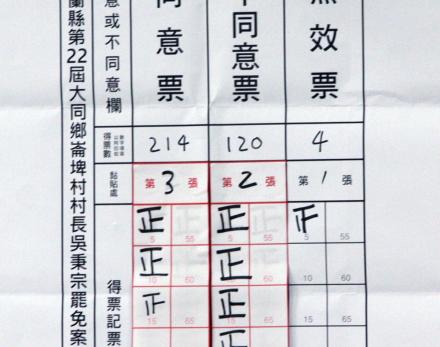 蘭縣第22屆大同鄉崙埤村村長吳秉宗罷免案
意或不同意欄
同意票
不同意票
無效票
得票數
214
120
4
黏貼處
第3張
第2張
第1張
得票記票
正 正
5 55 5 55 5 55
正 正
10 60 10 60 10 60
正
15 65 15 65 15 65